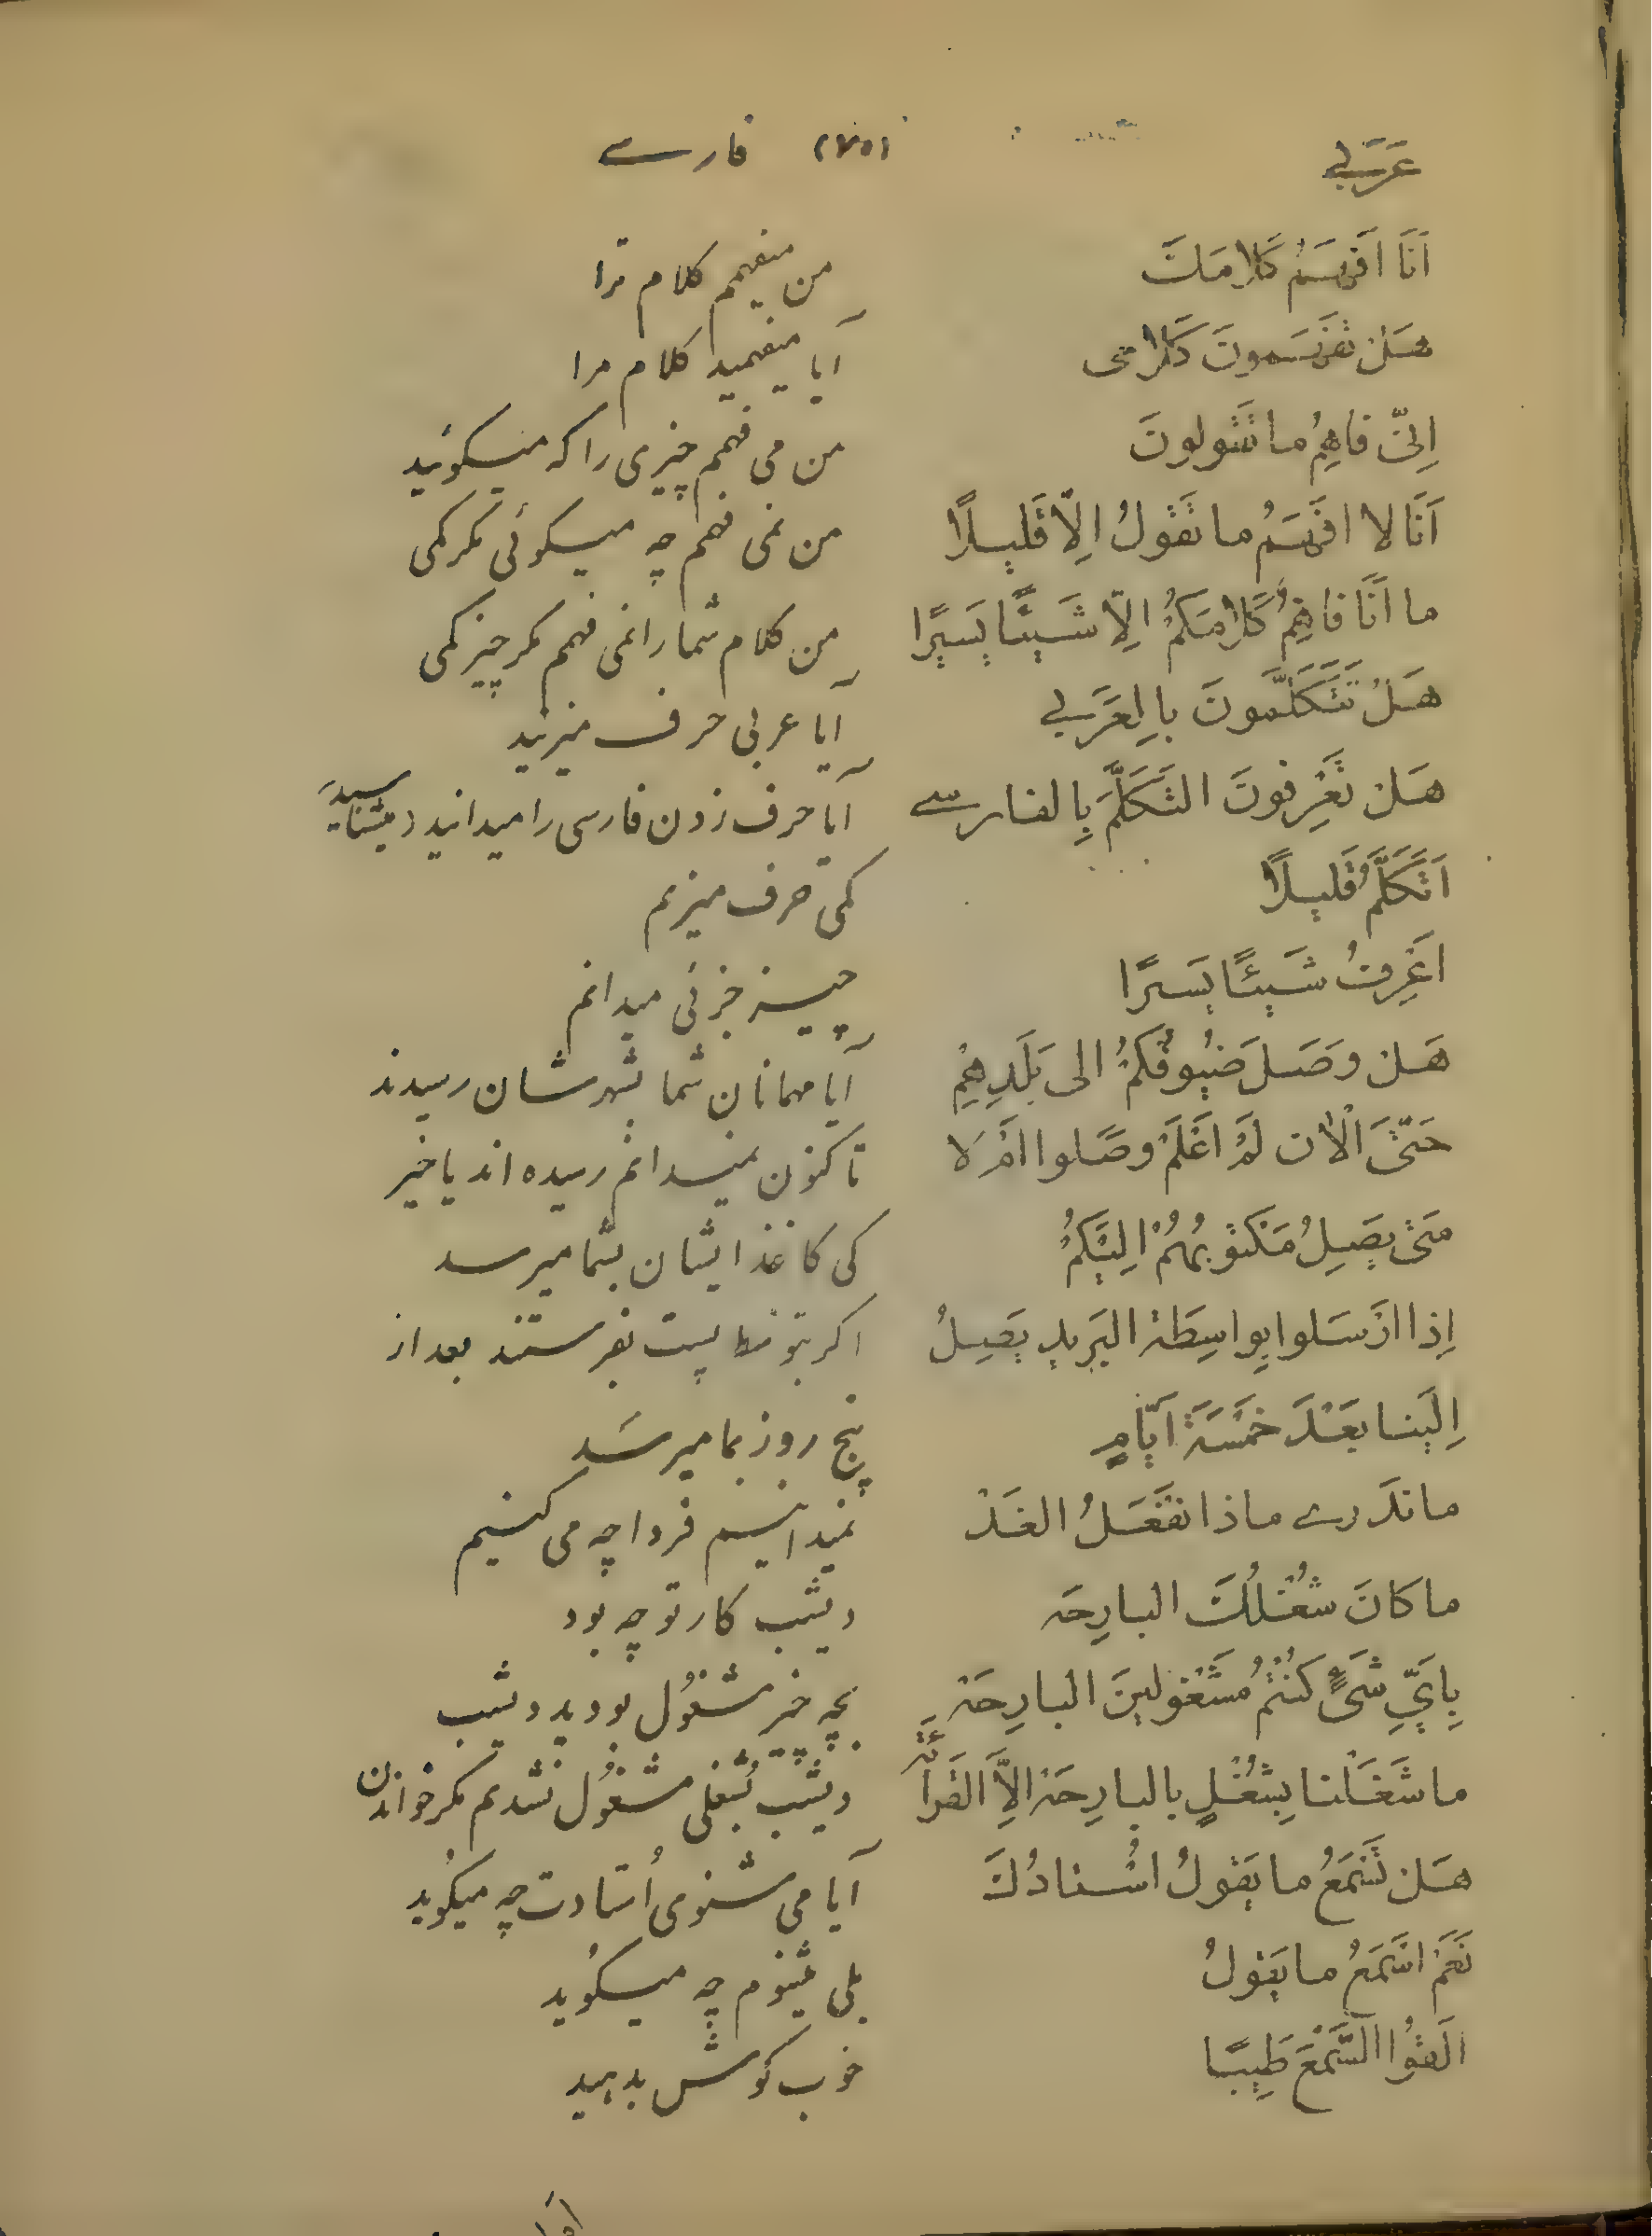 عَرَبی (۷۵) فارسی
اَنَا اَفْهَمُ كَلامَكَ من میفهمم کلام ترا
هَلْ تَفْهَمونَ كَلامی آیا میفهمید کلام مرا
اِنّی فاهِمُ ما تَقولونَ من می فهمم چیزی را که میگوئید
اَنَا لا افْهَمُ ما تَقولُ اِلّا قَليلًا من نمی فهمم چه میگوئی مگر کمی
ما اَنَا فاهِمُ كَلامَكُمْ اِلّا شَيْئًا يَسيرًا من کلام شما را نمی فهمم مگر چیز کمی
هَلْ تَتَكَلَّمونَ بِالعَرَبی آیا عربی حرف میزنید
هَلْ تَعْرِفونَ التَّكَلُّمَ بِالفارسی آیا حرف زدن فارسی را میدانید و میشناسید
اَتَكَلَّمُ قَليلًا کمی حرف میزنم
اَعْرِفُ شَيْئًا يَسيرًا چیز جزئی میدانم
هَلْ وَصَلَ ضُيوفُكُمْ الى بَلَدِهِمْ آیا مهمانان شما بشهرشان رسیدند
حَتّىَ الْآن لَمْ اَعْلَمْ وصَلوا اَمْ لا تا کنون نمیدانم رسیده اند یا خیر
مَتى يَصِلُ مَكْتوبُهُمْ اِلَيْكُمْ کی کاغذ ایشان بشما میرسد
اِذا ارْسَلوا بِواسِطَة البَريدِ يَصِلُ اگر بتوسط پست بفرستند بعد از
اِلَيْنا بَعْدَ خَمْسَةِ اَيّامٍ پنج روز بما میرسَد
ما نَدْری ماذا نَفْعَلُ الغَدْ نمیدانیم فردا چه می کنیم
ما كانَ شُغْلُكَ البارِحَه دیشب کار تو چه بود
بِاَیِّ شَیْءٍ كُنْتُمْ مَشْغولينَ البارِحَة بچه چیز مشغُول بودید دیشب
ما شَغَلْنا بِشُغْلٍ بالبارِحَة اِلاَّ القَرائَة دیشب بشُغلی مشغُول نشدیم مگر خواندن
هَلْ تَسْمَعُ ما يَقولُ اُسْتادُكَ آیا می شنوی اُستادت چه میگوید
نَعَمْ اسْمَعُ ما يَقولُ بلی میشنوم چه میگُوید
اَلْقُوا السَّمْعَ طَيِّبًا خوب گوش بدهید